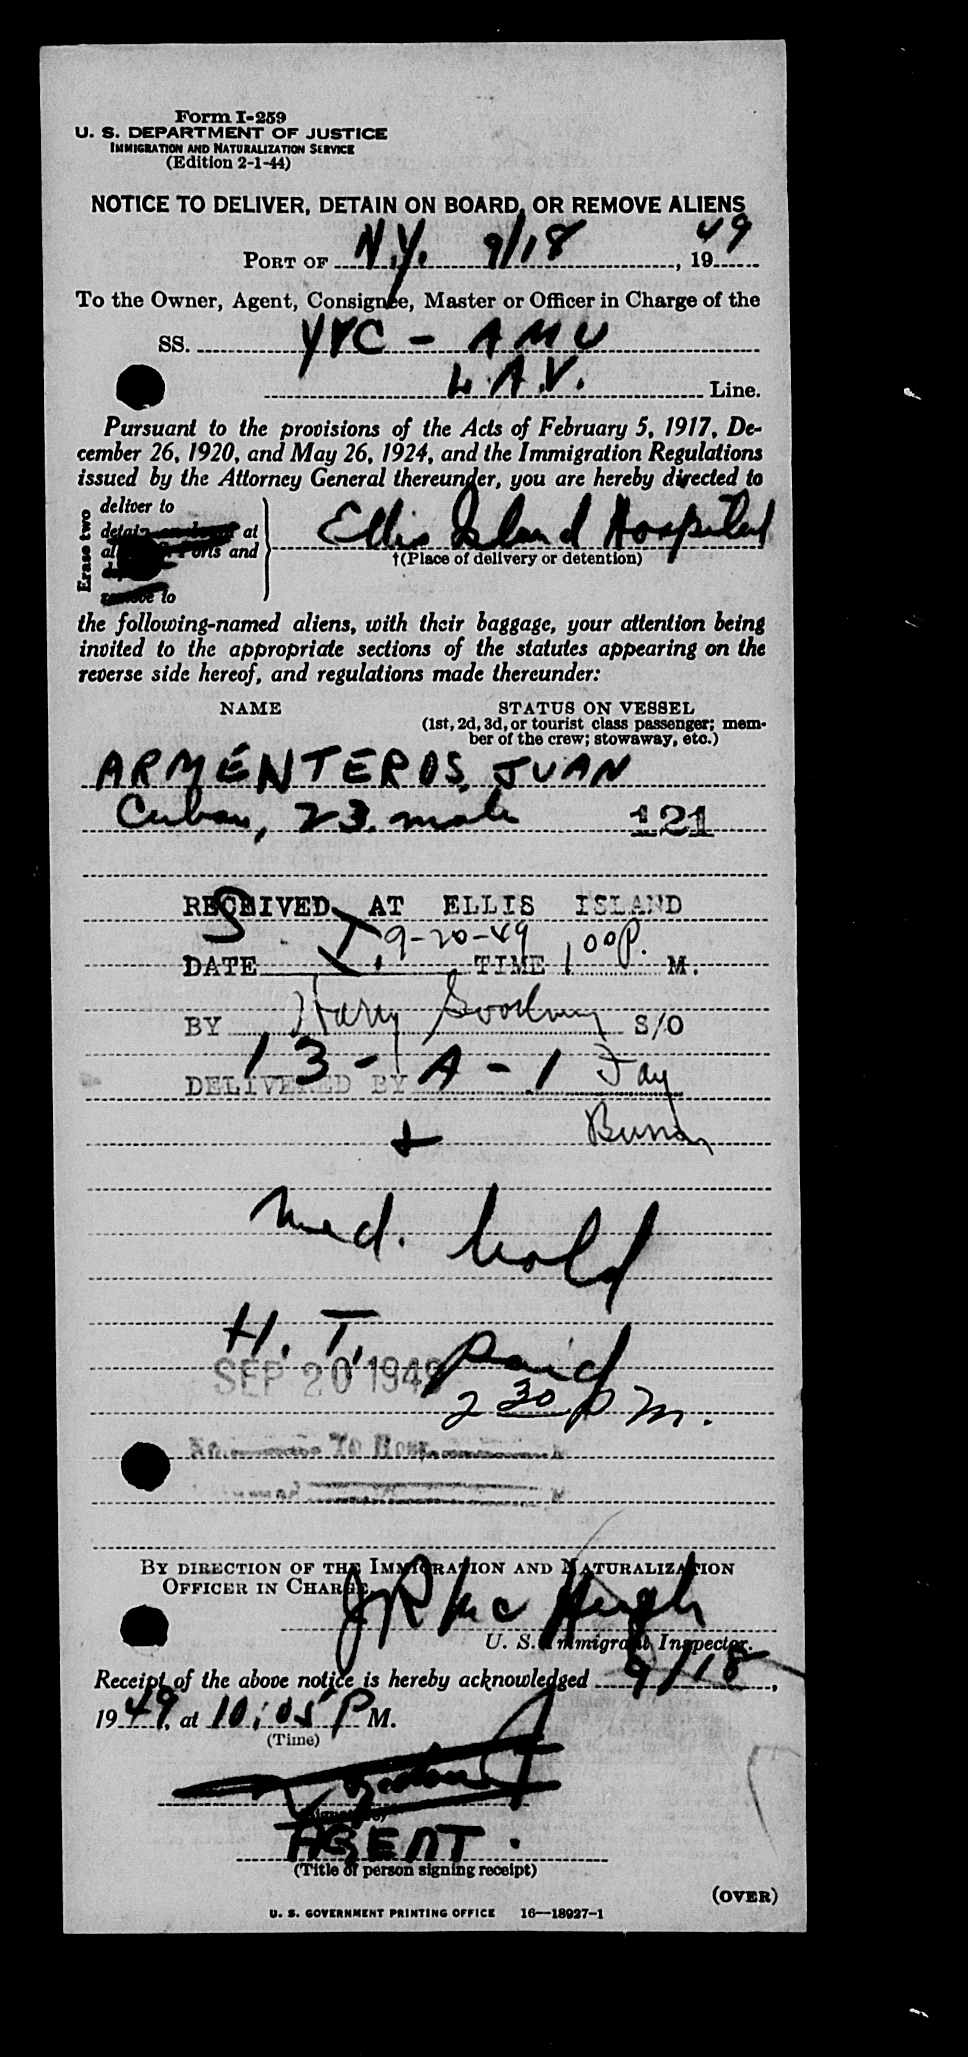 Form I-259
U. S. DEPARTMENT OF JUSTICE
IMMIGRATION AND NATURALIZATION SERVICE
(Edition 2-1-44)
NOTICE TO DELIVER, DETAIN ON BOARD, OR REMOVE ALIENS
PORT OF N.Y. 9/18, 1949
To the Owner, Agent, Consignee, Master or Officer in Charge of the
SS. YVC - AMU
L.A.V. Line.
Pursuant to the provisions of the Acts of February 5, 1917, De-
cember 26, 1920, and May 26, 1924, and the Immigration Regulations
issued by the Attorney General thereunder, you are hereby directed to
Erase two
deliver to
detain at
and
to
Ellis Island Hospital
†(Place of delivery or detention)
the following-named aliens, with their baggage, your attention being
invited to the appropriate sections of the statutes appearing on the
reverse side hereof, and regulations made thereunder:
NAME STATUS ON VESSEL
(1st, 2d, 3d, or tourist class passenger; mem-
ber of the crew; stowaway, etc.)
ARMENTEROS, JUAN
Cuban, 23 male 121
RECEIVED AT ELLIS ISLAND
S. I.
DATE 9-20-49 TIME 1 00 P. M.
BY Harry S/O
13-A-1
DELIVERED BY Fay
+
Med. hold
H. T. paid
SEP 20 1949
2 30 P M.
To Hosp.
BY DIRECTION OF THE IMMIGRATION AND NATURALIZATION
OFFICER IN CHARGE
J R McHugh
U. S. Immigrant Inspector.
Receipt of the above notice is hereby acknowledged 9/18,
1949, at 10:05 P M.
(Time)
AGENT.
(Title of person signing receipt)
(OVER)
U. S. GOVERNMENT PRINTING OFFICE 16—18927-1